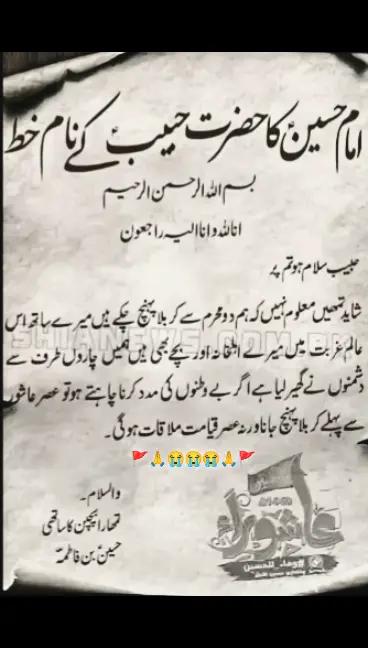 امام حسینؑ کا حضرت حبیبؑ کے نام خط
بسم اللہ الرحمن الرحیم
انا للہ وانا الیہ راجعون
حبیب سلام ہو تم پر
شاید تمھیں معلوم نہیں کہ ہم دو محرم سے کربلا پہنچ چکے ہیں میرے ساتھ اس
عالم غربت میں میرے اہلخانہ اور بچے بھی ہیں ہمیں چاروں طرف سے
دشمنوں نے گھیر لیا ہے اگر بے وطنوں کی مدد کرنا چاہتے ہو تو عصر عاشور
سے پہلے کربلا پہنچ جانا ورنہ عصر قیامت ملاقات ہوگی۔
🚩🙏😭😭😭🙏🚩
والسلام۔
تمھارا بچپن کا ساتھی
حسینؑ بن فاطمہؑ
SHIANEWS.COM.PK
عاشوراء